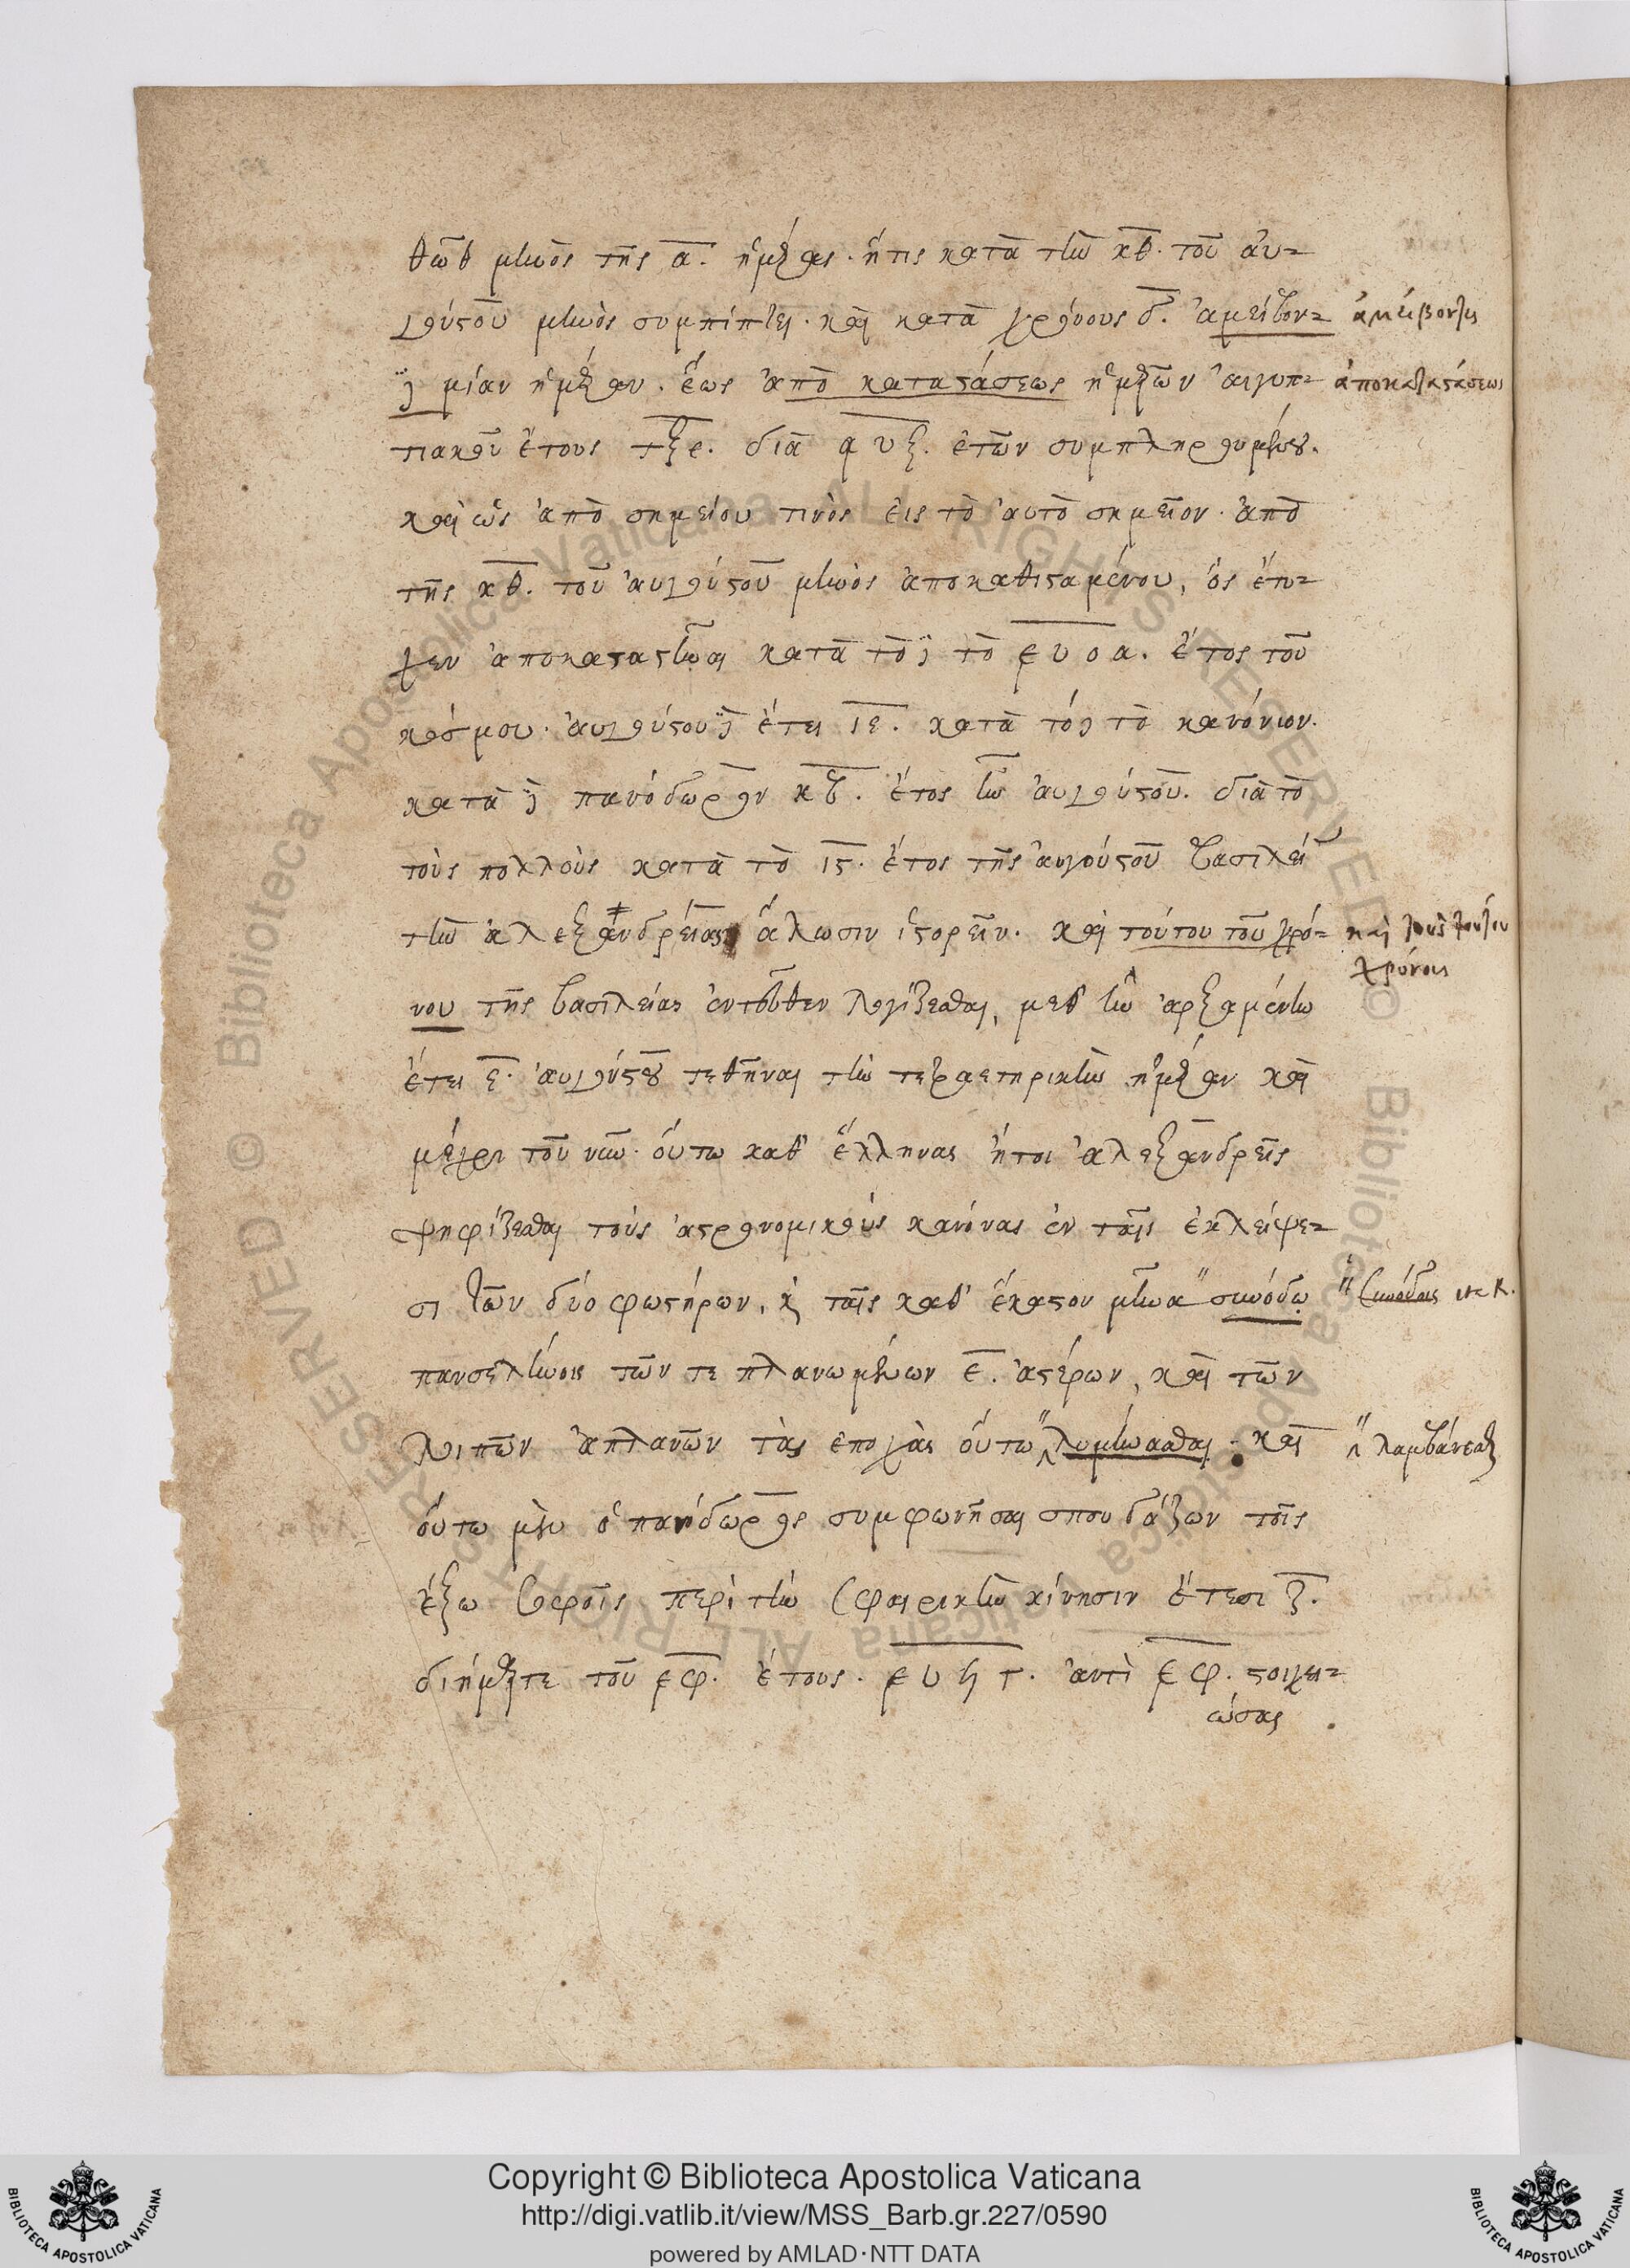 θὼθ μηνὸς τῆς α. ἡμέρας. ἥτις κατὰ τὴν κθ. τοῦ αὐ-
γούστου μηνὸς συμπίπτει. καὶ κατὰ χρόνους δ. ἀμείβον-
μίαν ἡμέραν. ἕως ἀπὸ καταστάσεως ἡμερῶν αἰγυπ-
τιακοῦ ἔτους τξε. διὰ αυξ. ἐτῶν συμπληρουμένου.
καὶ ὡς ἀπὸ σημείου τινὸς εἰς τὸ αὐτὸ σημεῖον. ἀπὸ
τῆς κθ. τοῦ αὐγούστου μηνὸς ἀποκαθισταμένου, ὃς ἔτυ-
χεν ἀποκαταστῆναι κατὰ τὸ ευοα. ἔτος τοῦ
κόσμου. αὐγούστου ἔτει ιε. κατὰ τὸ κανόνιον.
κατὰ πανόδωρον κβ. ἔτος ἦν αὐγούστου. διὰ τὸ
τοὺς πολλοὺς κατὰ τὸ ις. ἔτος τῆς αὐγούστου βασιλεί
τὴν ἀλεξανδρείας ἅλωσιν ἱστορεῖν. καὶ τούτου τοῦ χρό-
νου τῆς βασιλείας ἐντεῦθεν λογίζεσθαι, μεθ' ἣν ἀρξαμένην
ἔτει ε. αὐγούστου τεθῆναι τὴν τετραετηρικὴν ἡμέραν καὶ
μέχρι τοῦ νῦν. οὕτω καθ' ἕλληνας ἤτοι ἀλεξανδρεῖς
ψηφίζεσθαι τοὺς ἀστρονομικοὺς κανόνας ἐν ταῖς ἐκλείψε-
σι τῶν δύο φωστήρων, κ ταῖς καθ' ἕκαστον μῆνα συνόδω
πανσελήνοις τῶν τε πλανωμένων ε. ἀστέρων, καὶ τῶν
λοιπῶν ἀπλανῶν τὰς ἐποχὰς οὕτω λυμήνασθαι. καὶ
οὕτω μὲν ὁ πανόδωρος συμφωνῆσαι σπουδάζων τοῖς
ἔξω σοφοῖς περὶ τὴν σφαιρικὴν κίνησιν ἔτεσι ζ.
διήμαρτε τοῦ εφ. ἔτους. ευϟγ. ἀντὶ εφ. στοιχει-
ώσας.
ἀμείβοντος
ἀποκαταστάσεως
καὶ τοὺς τούτου
χρόνους
συνόδοις
λαμβάνεσθαι
Copyright © Biblioteca Apostolica Vaticana
http://digi.vatlib.it/view/MSS_Barb.gr.227/0590
powered by AMLAD·NTT DATA
BIBLIOTECA APOSTOLICA VATICANA
BIBLIOTECA APOSTOLICA VATICANA
Biblioteca Apostolica Vaticana ALL RIGHTS RESERVED ©
Biblioteca Apostolica Vaticana ALL RIGHTS RESERVED ©